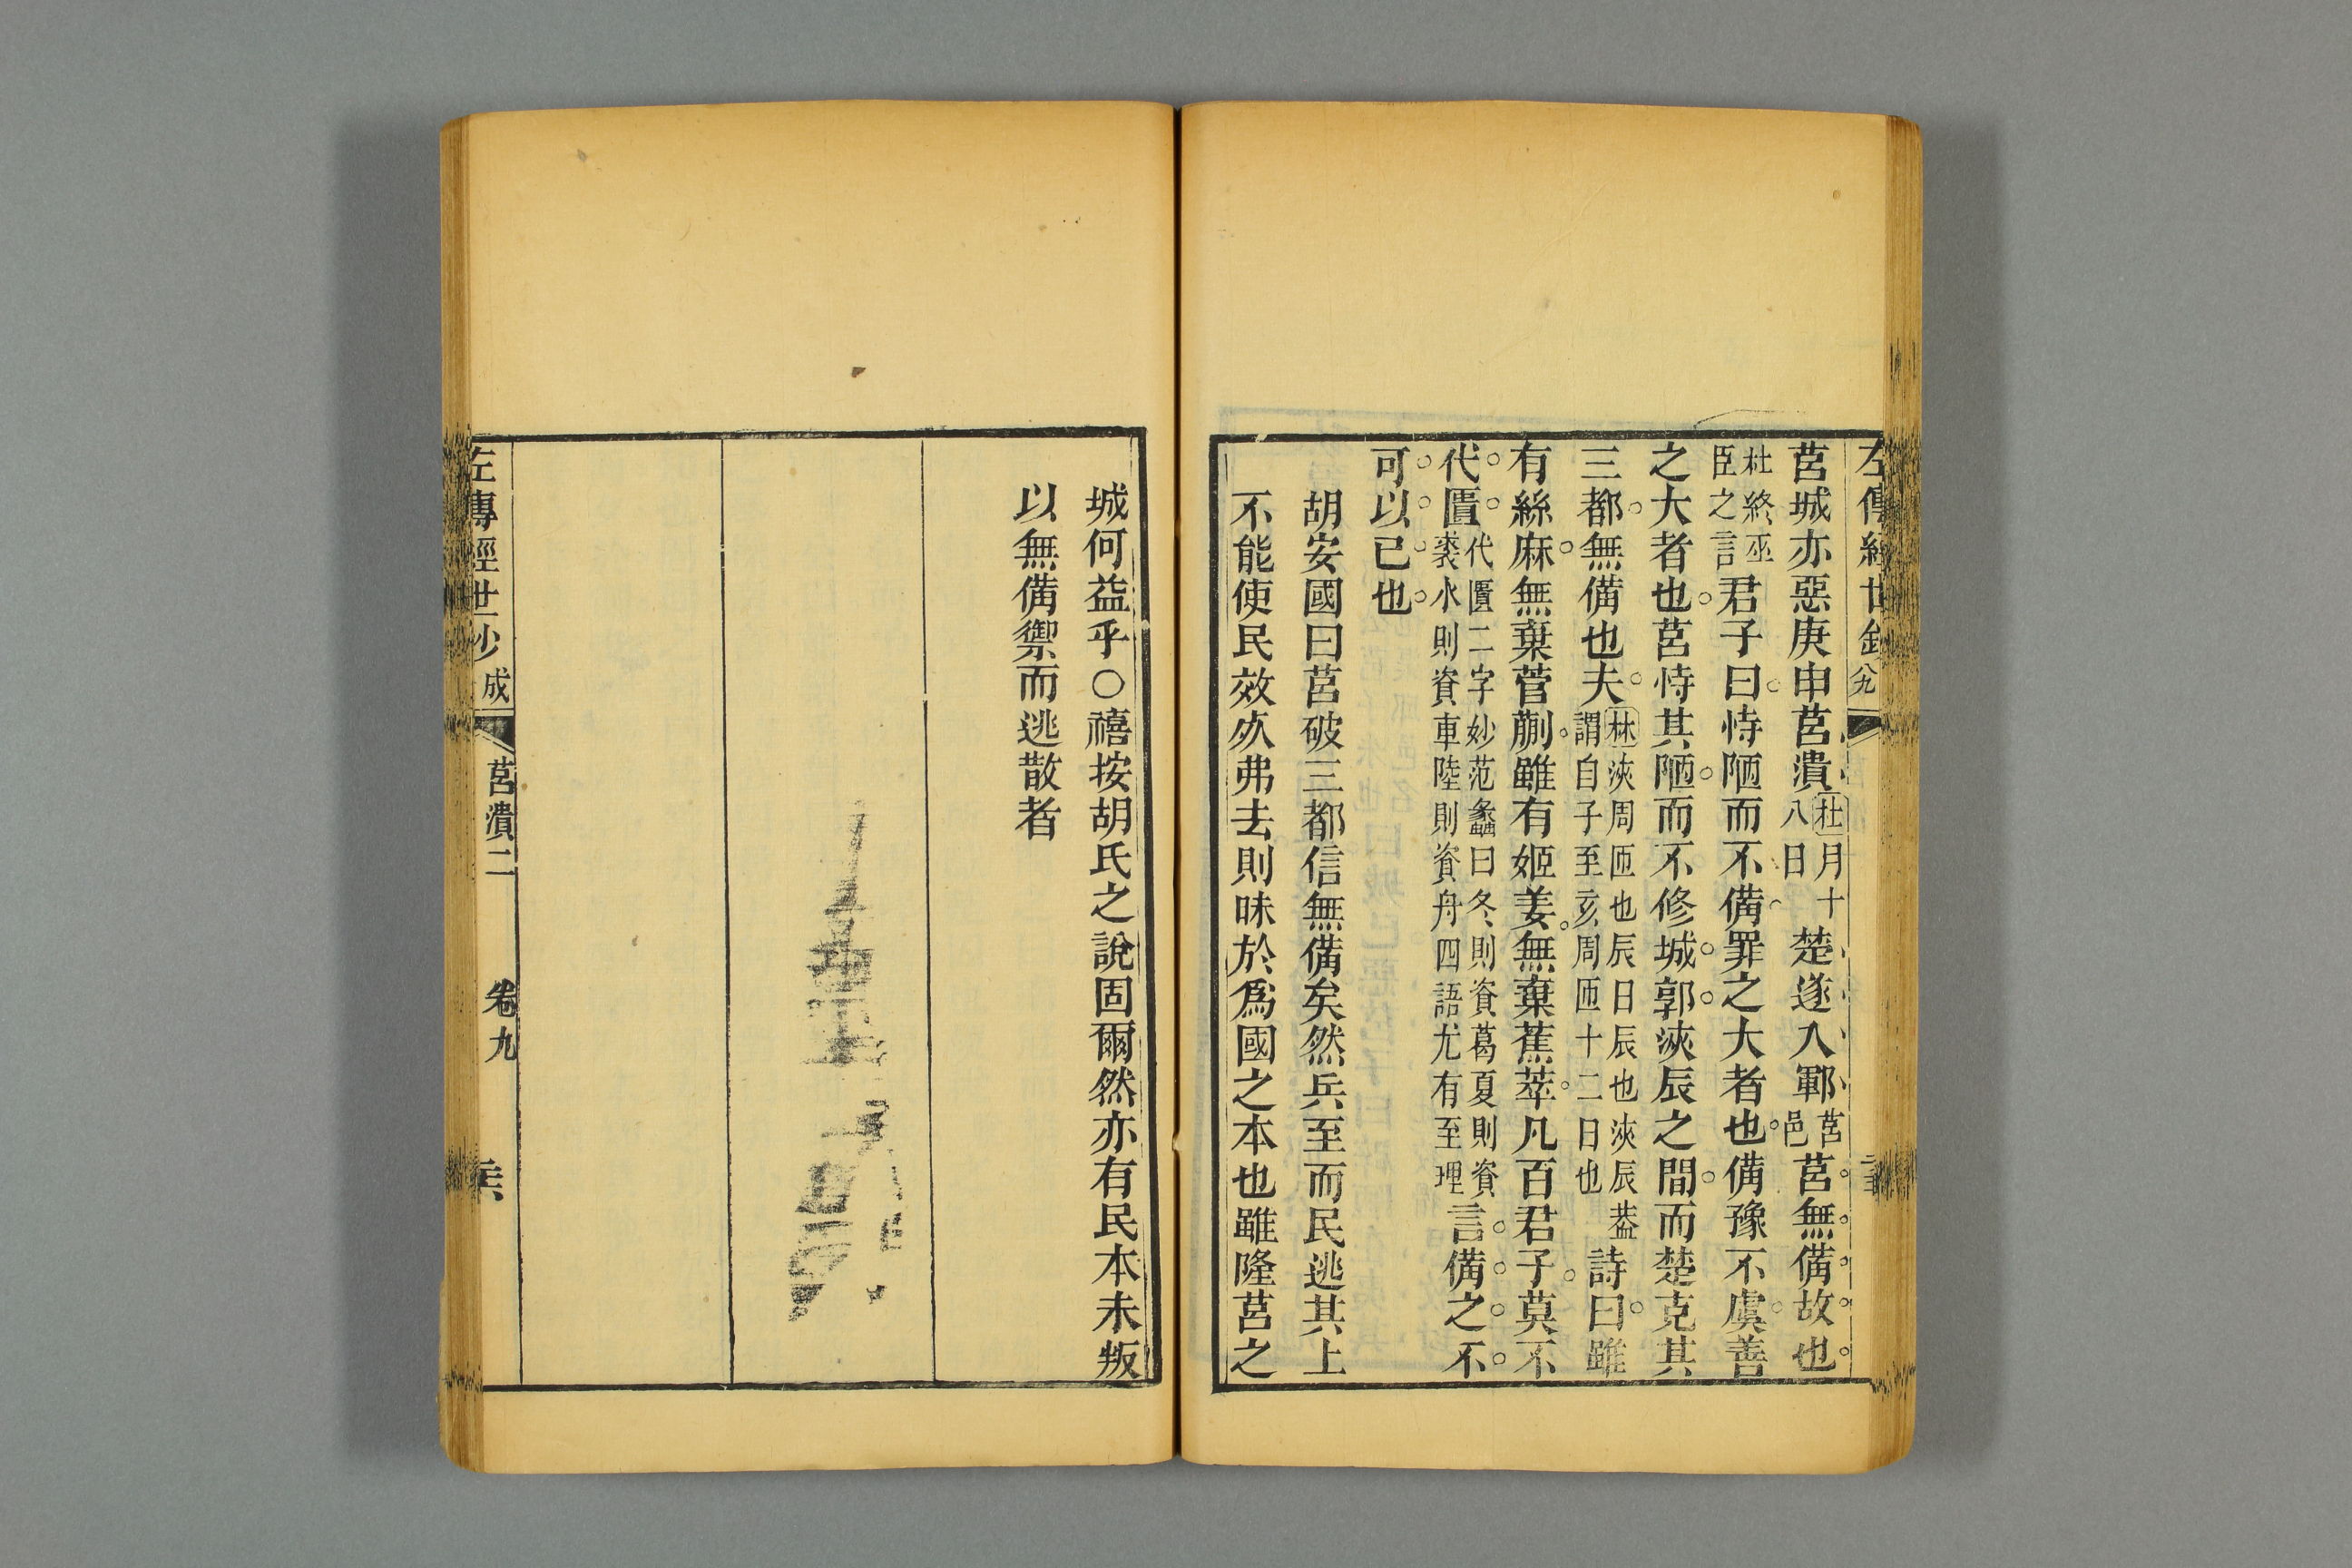 左傳經世鈔
莒城亦惡庚申莒潰杜月十八日楚遂入鄆莒邑莒無備故也
杜終巫臣之言君子曰恃陋而不備罪之大者也備豫不虞善
之大者也莒恃其陋而不修城郭浹辰之間而楚克其
三都無備也夫林浹周匝也辰日辰也浹辰葢謂自子至亥周匝十二日也詩曰雖
有絲麻無棄菅蒯雖有姬姜無棄蕉萃凡百君子莫不
代匱代匱二字妙范蠡曰冬則資葛夏則資裘水則資車陸則資舟四語尤有至理言備之不
可以已也
胡安國曰莒破三都信無備矣然兵至而民逃其上
不能使民效死弗去則昧於爲國之本也雖隆莒之
城何益乎○禧按胡氏之說固爾然亦有民本未叛
以無備禦而逃散者
左傳經世鈔 成 莒潰二 卷九